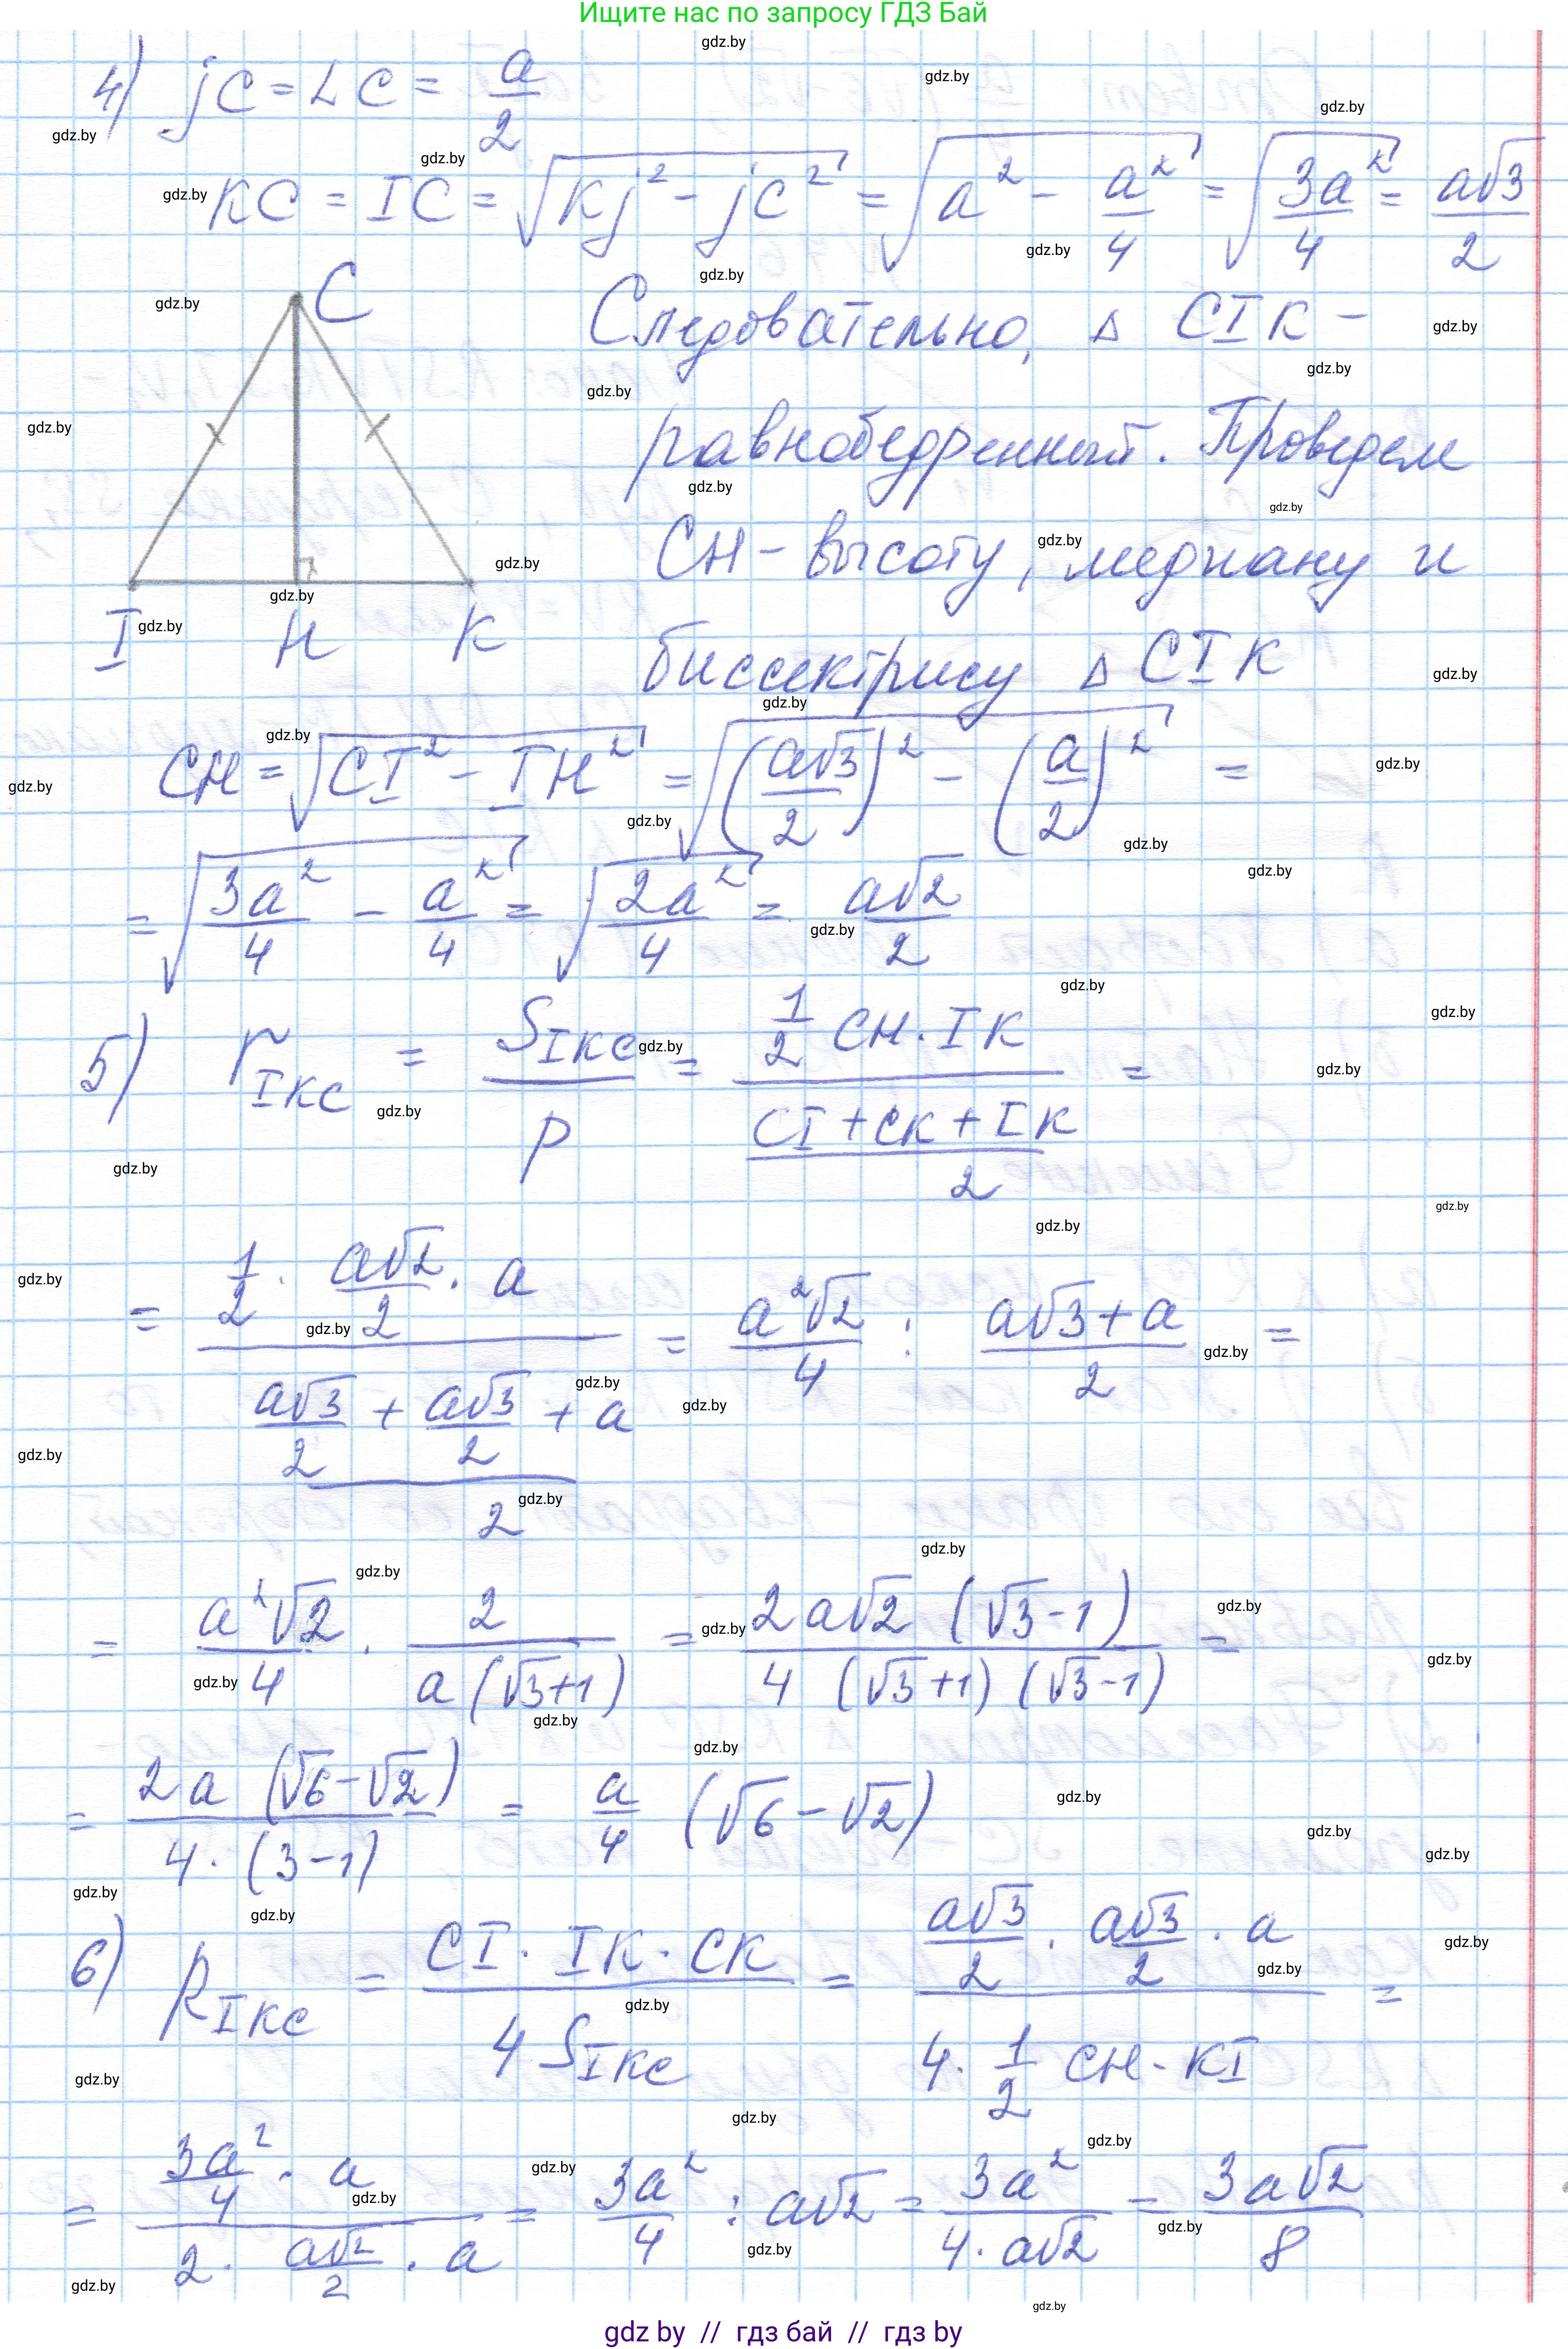 Ищите нас по запросу ГДЗ Бай
4) jC = LC = a/2
KC = IC = √(Kj² - jC²) = √(a² - a²/4) = √(3a²/4) = a√3/2
C
Следовательно, Δ CIK -
равнобедренный. Проведем
CH - высоту, медиану и
I H K
биссектрису Δ CIK
CH = √(CI² - IH²) = √((a√3/2)² - (a/2)²) =
= √(3a²/4 - a²/4) = √(2a²/4) = a√2/2
5) r_IKC = S_IKC / p = (1/2 CH · IK) / ((CI + CK + IK)/2) =
= (1/2 · a√2/2 · a) / ((a√3/2 + a√3/2 + a)/2) = a²√2/4 : (a√3 + a)/2 =
= a²√2/4 · 2/(a(√3+1)) = 2a√2(√3-1) / (4(√3+1)(√3-1)) =
= 2a(√6-√2) / (4·(3-1)) = a/4 (√6-√2)
6) R_IKC = (CI · IK · CK) / (4S_IKC) = (a√3/2 · a√3/2 · a) / (4 · 1/2 CH · KI) =
= (3a²/4 · a) / (2 · a√2/2 · a) = 3a²/4 : a√2 = 3a²/(4·a√2) = 3a√2/8
gdz by // гдз бай // гдз by